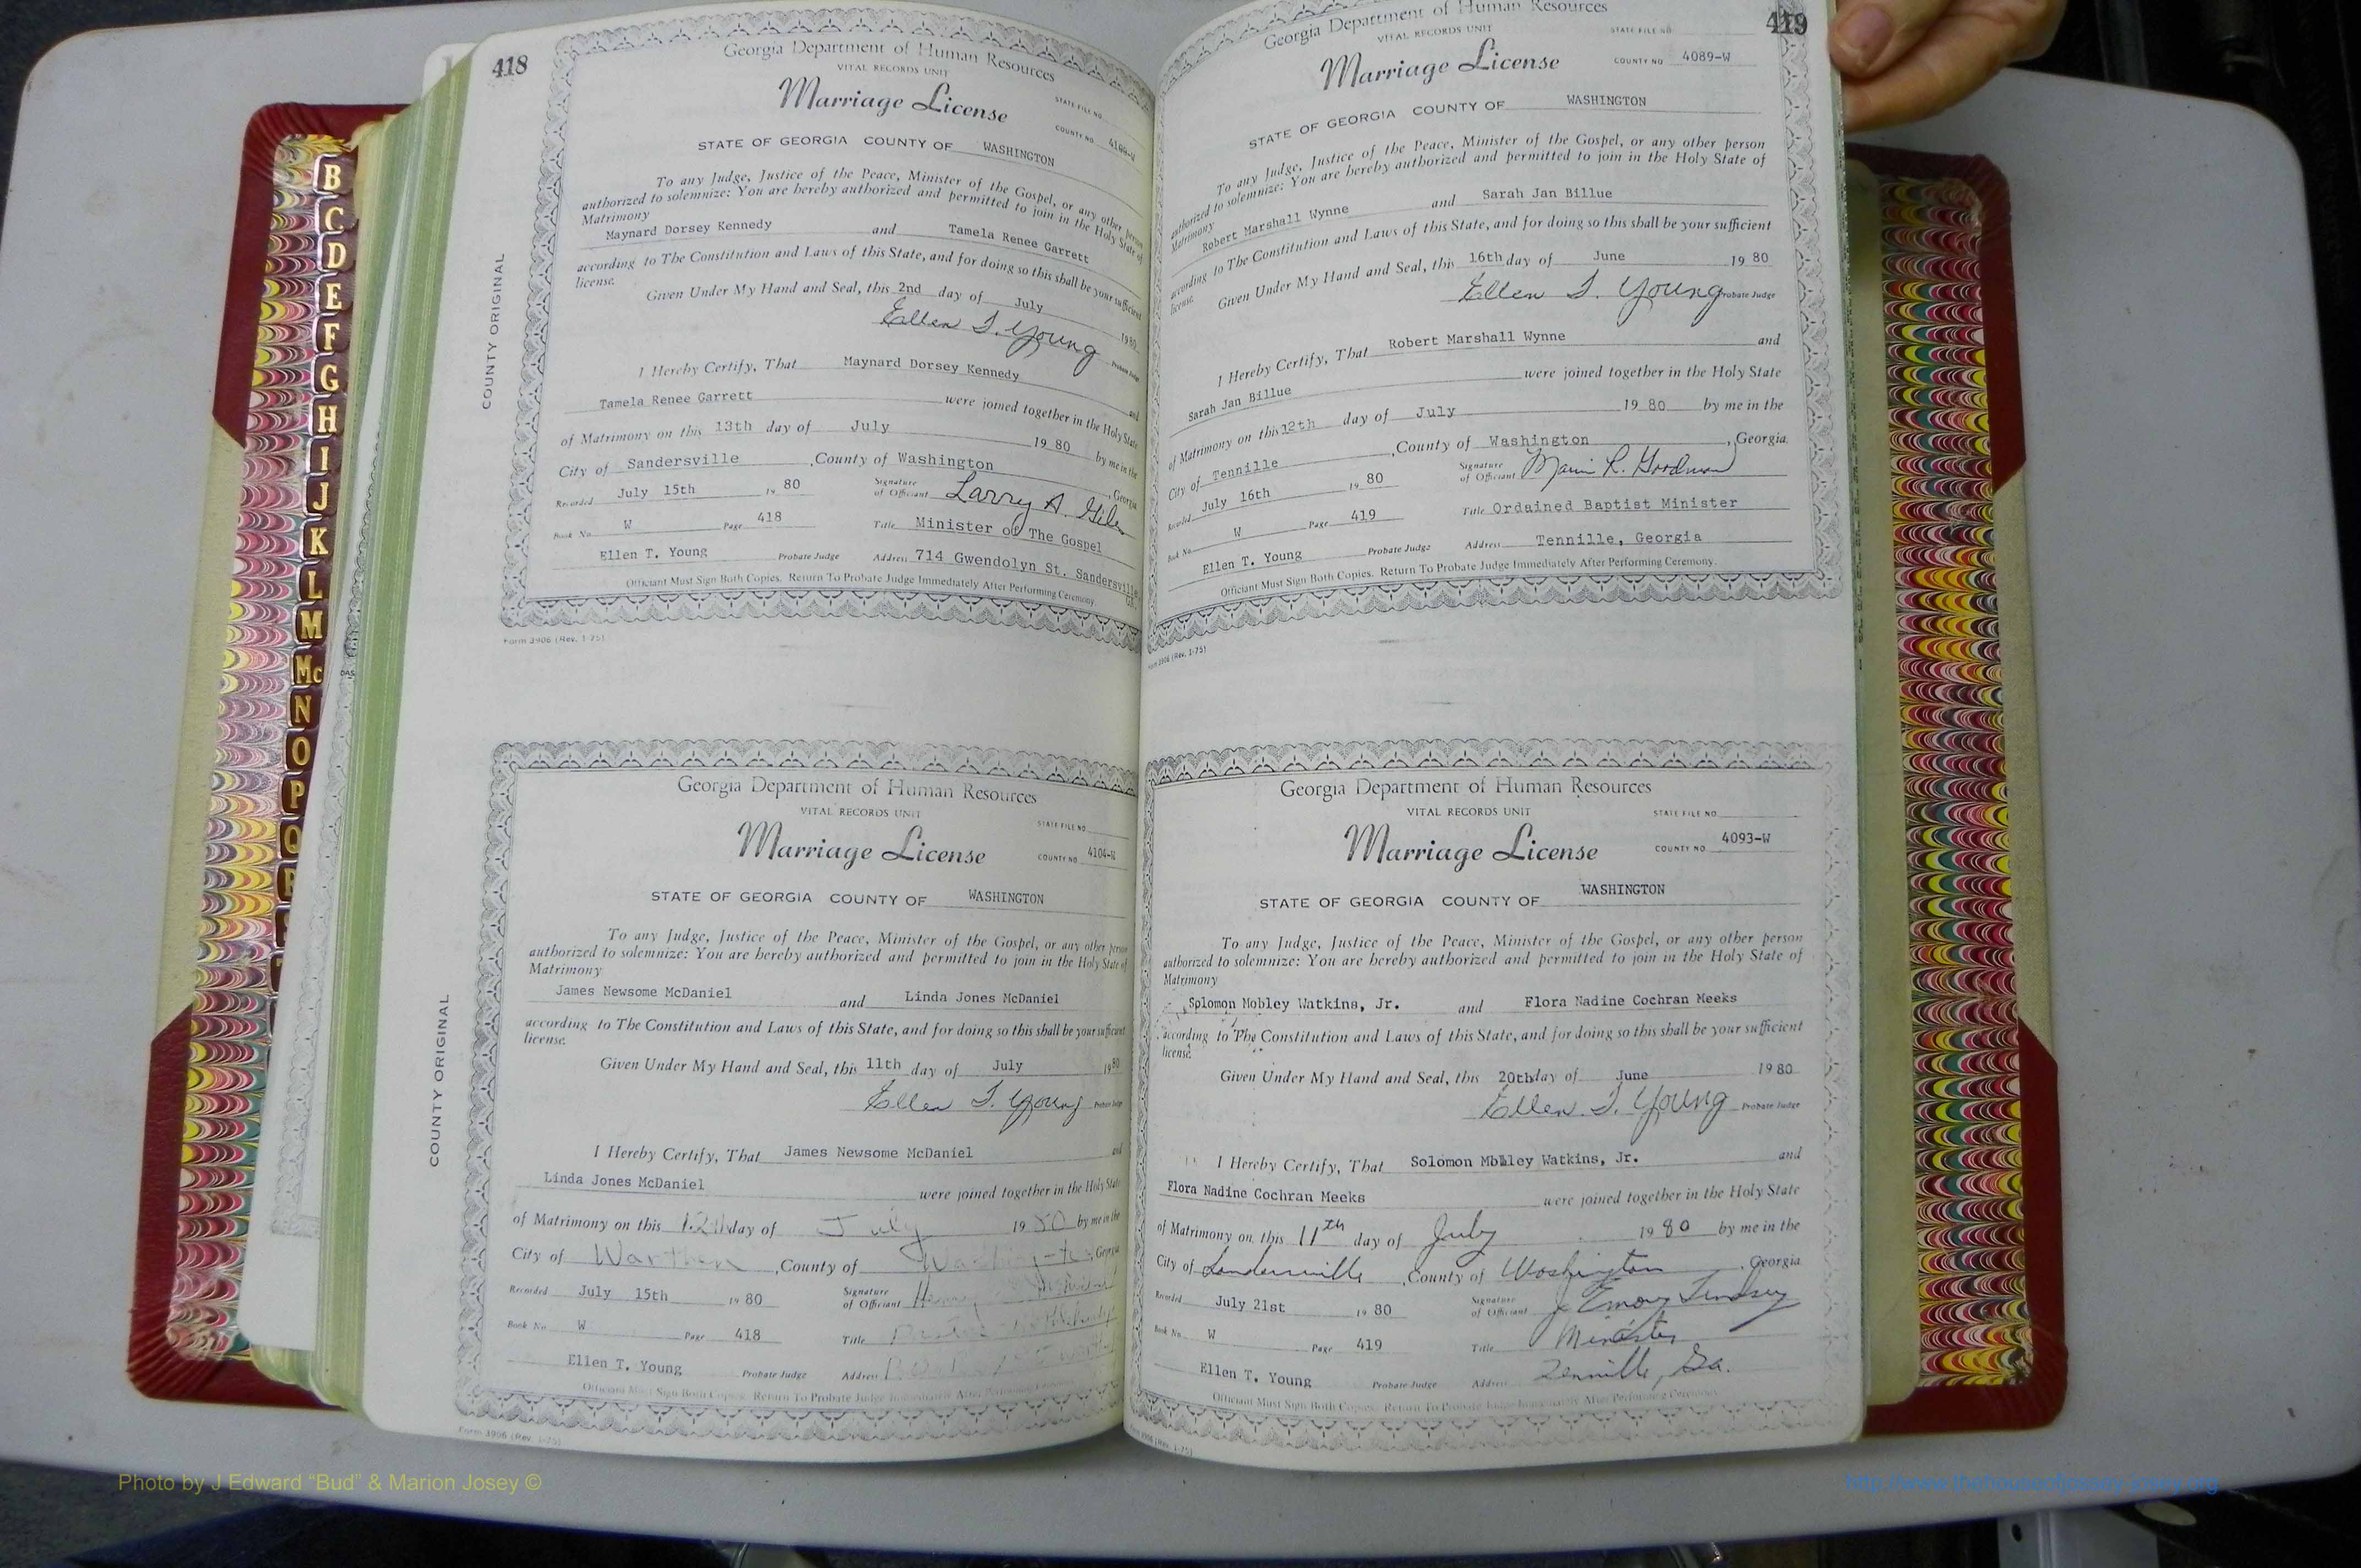 418
Georgia Department of Human Resources
VITAL RECORDS UNIT
Marriage License
STATE FILE NO.
COUNTY NO.
STATE OF GEORGIA COUNTY OF WASHINGTON
To any Judge, Justice of the Peace, Minister of the Gospel, or any other person
authorized to solemnize: You are hereby authorized and permitted to join in the Holy State of
Matrimony
Maynard Dorsey Kennedy and Tamela Renee Garrett
according to The Constitution and Laws of this State, and for doing so this shall be your sufficient
license.
Given Under My Hand and Seal, this 2nd day of July 1980
Ellen T. Young Probate Judge
I Hereby Certify, That Maynard Dorsey Kennedy and
Tamela Renee Garrett were joined together in the Holy State
of Matrimony on this 13th day of July 19 80 by me in the
City of Sandersville, County of Washington, Georgia
Recorded July 15th 19 80 Signature of Officiant Larry A.
Book No. W Page 418 Title Minister of The Gospel
Ellen T. Young Probate Judge Address 714 Gwendolyn St. Sandersville,
Officiant Must Sign Both Copies. Return To Probate Judge Immediately After Performing Ceremony.
Form 3906 (Rev. 1-75)
COUNTY ORIGINAL
Georgia Department of Human Resources
VITAL RECORDS UNIT
Marriage License
STATE FILE NO.
COUNTY NO. 4104-W
STATE OF GEORGIA COUNTY OF WASHINGTON
To any Judge, Justice of the Peace, Minister of the Gospel, or any other person
authorized to solemnize: You are hereby authorized and permitted to join in the Holy State of
Matrimony
James Newsome McDaniel and Linda Jones McDaniel
according to The Constitution and Laws of this State, and for doing so this shall be your sufficient
license.
Given Under My Hand and Seal, this 11th day of July 1980
Ellen T. Young Probate Judge
I Hereby Certify, That James Newsome McDaniel and
Linda Jones McDaniel were joined together in the Holy State
of Matrimony on this 12th day of July 19 80 by me in the
City of Warthen, County of Washington, Georgia
Recorded July 15th 19 80 Signature of Officiant
Book No. W Page 418 Title
Ellen T. Young Probate Judge Address
Officiant Must Sign Both Copies. Return To Probate Judge Immediately After Performing Ceremony.
Form 3906 (Rev. 1-75)
COUNTY ORIGINAL
419
Georgia Department of Human Resources
VITAL RECORDS UNIT
Marriage License
STATE FILE NO.
COUNTY NO. 4089-W
STATE OF GEORGIA COUNTY OF WASHINGTON
To any Judge, Justice of the Peace, Minister of the Gospel, or any other person
authorized to solemnize: You are hereby authorized and permitted to join in the Holy State of
Matrimony
Robert Marshall Wynne and Sarah Jan Billue
according to The Constitution and Laws of this State, and for doing so this shall be your sufficient
license.
Given Under My Hand and Seal, this 16th day of June 19 80
Ellen T. Young Probate Judge
I Hereby Certify, That Robert Marshall Wynne and
Sarah Jan Billue were joined together in the Holy State
of Matrimony on this 12th day of July 19 80 by me in the
City of Tennille, County of Washington, Georgia
Recorded July 16th 19 80 Signature of Officiant R. Goodman
Book No. W Page 419 Title Ordained Baptist Minister
Ellen T. Young Probate Judge Address Tennille, Georgia
Officiant Must Sign Both Copies. Return To Probate Judge Immediately After Performing Ceremony.
Form 3906 (Rev. 1-75)
Georgia Department of Human Resources
VITAL RECORDS UNIT
Marriage License
STATE FILE NO.
COUNTY NO. 4093-W
STATE OF GEORGIA COUNTY OF WASHINGTON
To any Judge, Justice of the Peace, Minister of the Gospel, or any other person
authorized to solemnize: You are hereby authorized and permitted to join in the Holy State of
Matrimony
Splomon Mobley Watkins, Jr. and Flora Nadine Cochran Meeks
according to The Constitution and Laws of this State, and for doing so this shall be your sufficient
license.
Given Under My Hand and Seal, this 20th day of June 19 80
Ellen T. Young Probate Judge
I Hereby Certify, That Solomon Mobley Watkins, Jr. and
Flora Nadine Cochran Meeks were joined together in the Holy State
of Matrimony on this 11th day of July 19 80 by me in the
City of Sandersville, County of Washington, Georgia
Recorded July 21st 19 80 Signature of Officiant J Emory Lindsey
Book No. W Page 419 Title Minister
Ellen T. Young Probate Judge Address Tennille, Ga.
Officiant Must Sign Both Copies. Return To Probate Judge Immediately After Performing Ceremony.
(Rev. 1-75)
B
C
D
E
F
G
H
I
J
K
L
M
Mc
N
O
P
Q
R
Photo by J Edward “Bud” & Marion Josey ©
http://www.thehouseofjossey-josey.org